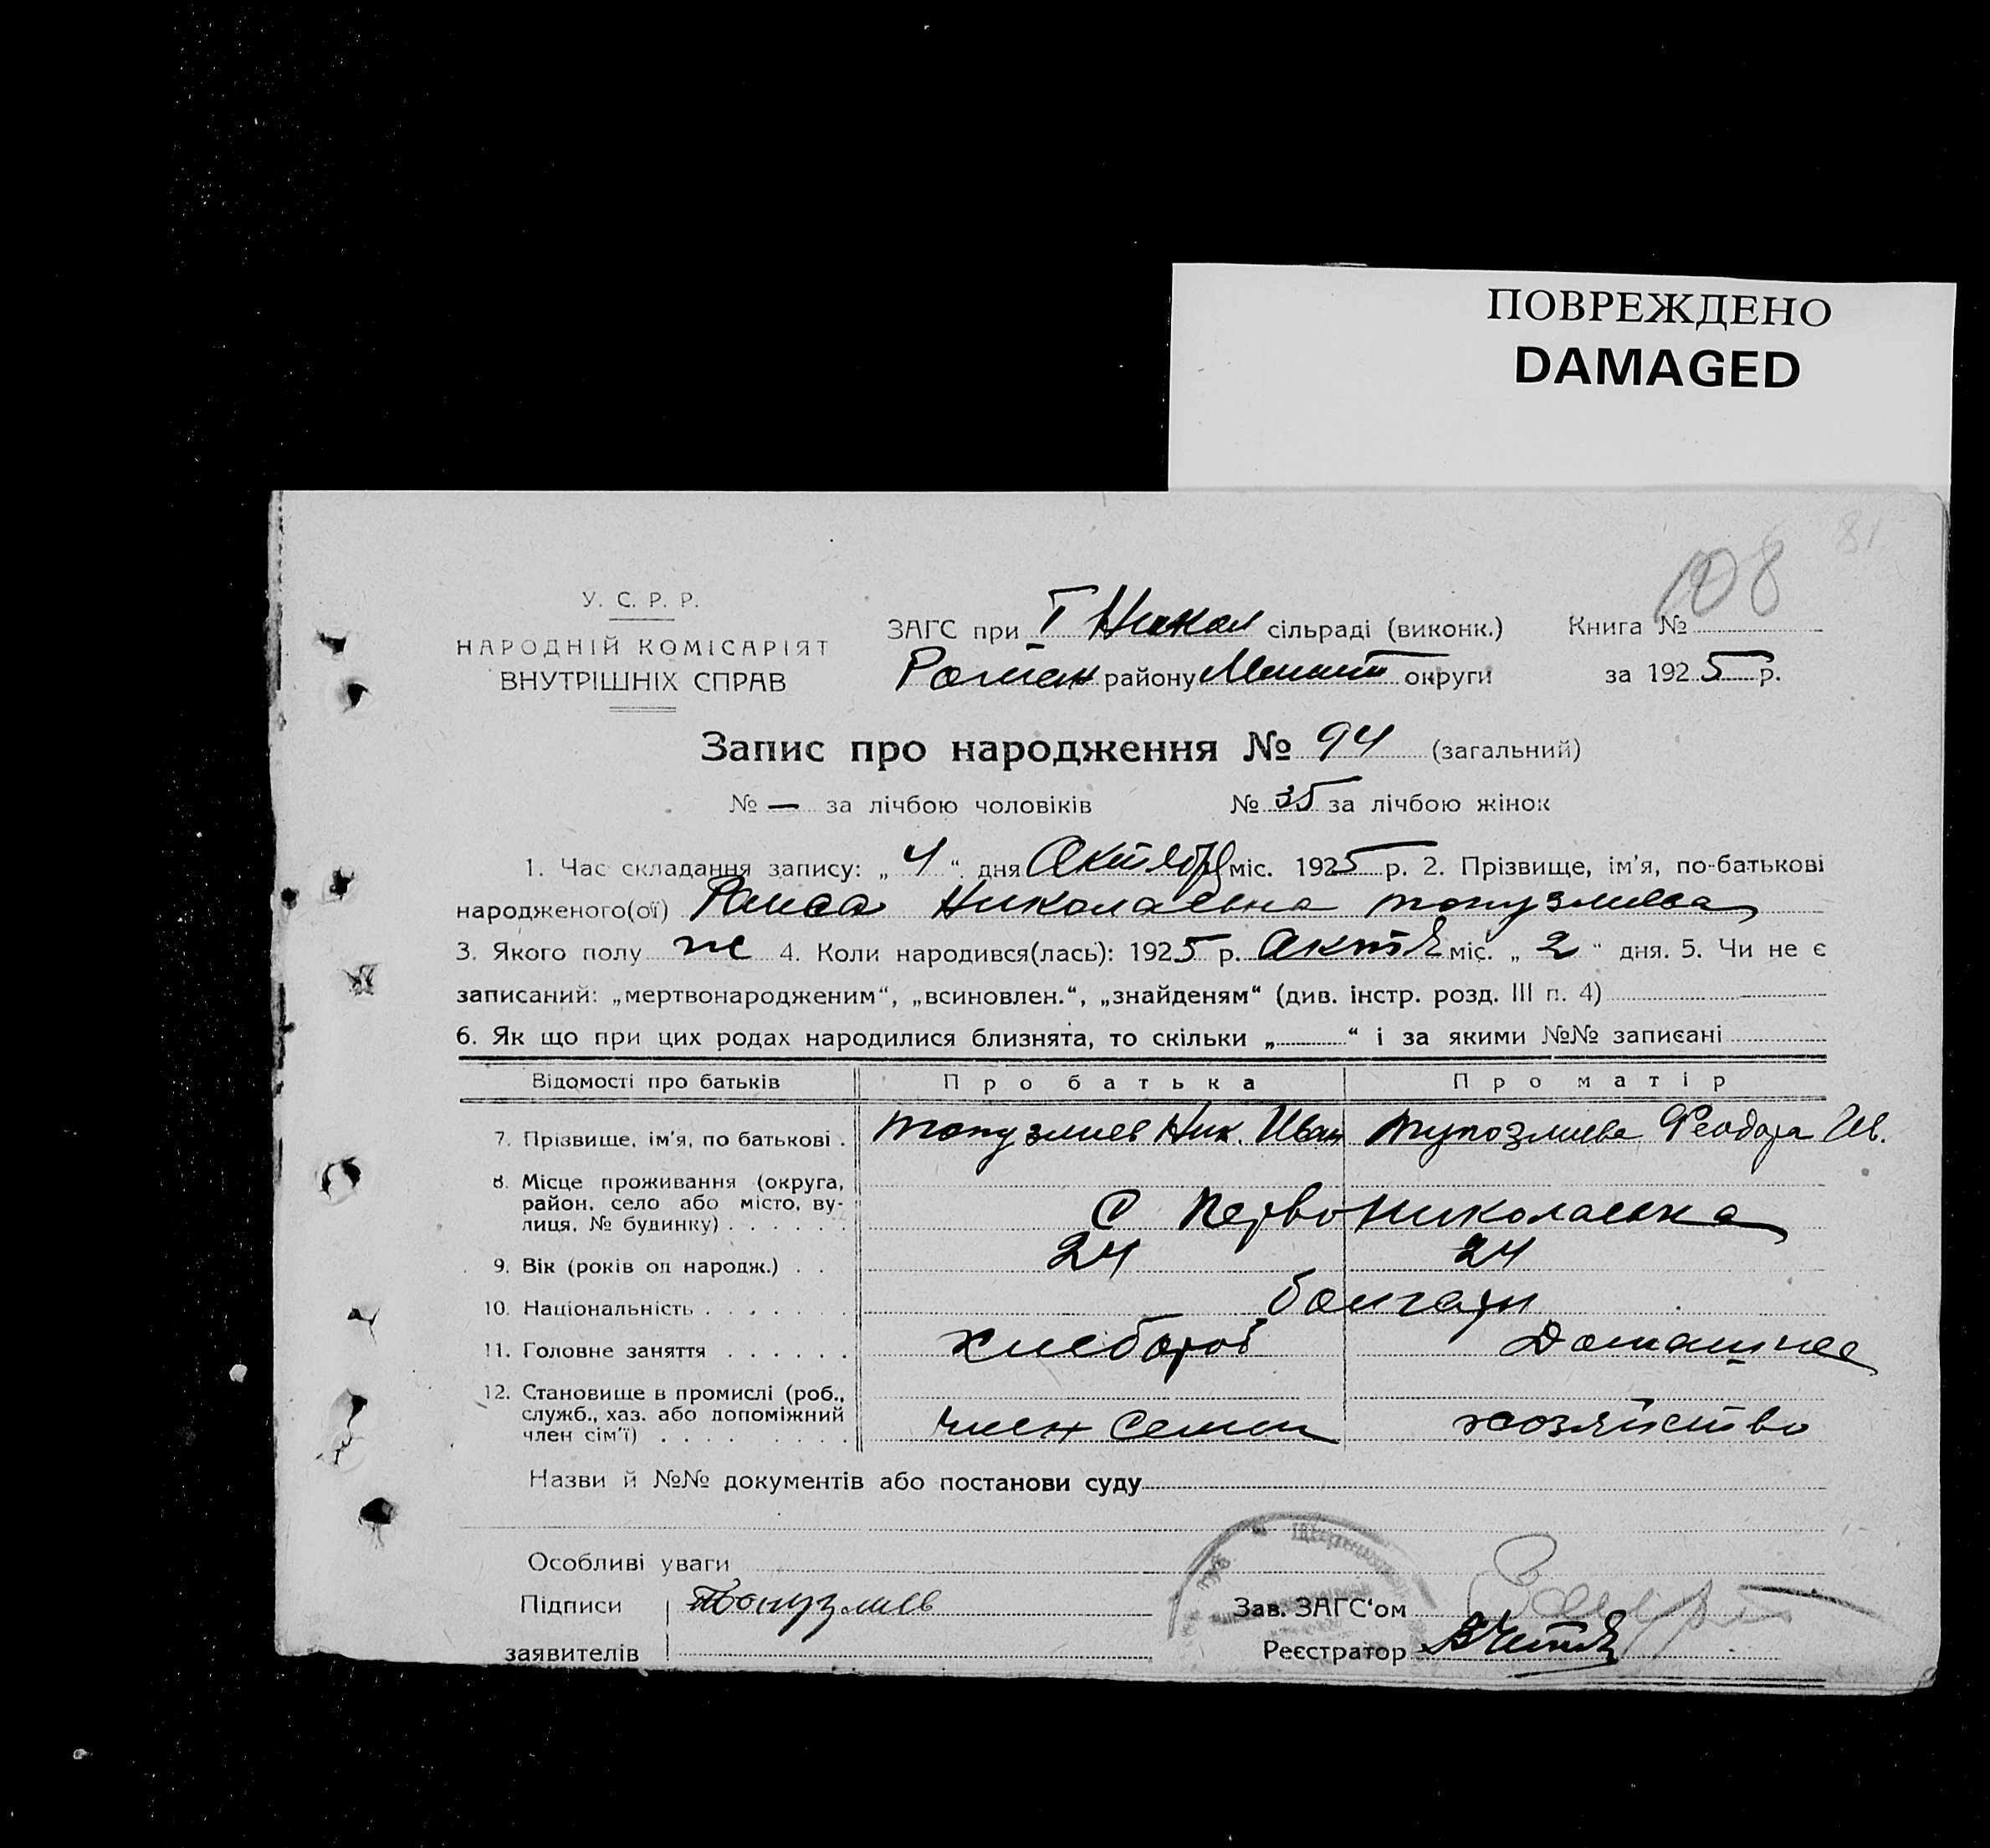 ПОВРЕЖДЕНО
DAMAGED
81
108
У. С. Р. Р.
НАРОДНІЙ КОМІСАРІЯТ
ВНУТРІШНІХ СПРАВ
ЗАГС при I Никол сільраді (виконк.) Книга №
Роман району Мелит округи за 1925 р.
Запис про народження № 94 (загальний)
№ — за лічбою чоловіків № 35 за лічбою жінок
1. Час складання запису: „ 4 “ дня Октября міс. 1925 р. 2. Прізвище, ім'я, по-батькові
народженого(ої) Раиса Николаевна Топузлиева
3. Якого полу ж 4. Коли народився(лась): 1925 р. Октя міс. „ 2 “ дня. 5. Чи не є
записаний: „мертвонародженим“, „всиновлен.“, „знайденям“ (див. інстр. розд. III п. 4)
6. Як що при цих родах народилися близнята, то скільки „ “ і за якими №№ записані
Відомості про батьків Про батька Про матір
7. Прізвище, ім'я, по батькові . Топузлиев Ник. Иван Тупозлиева Феодора Ив.
8. Місце проживання (округа,
район, село або місто, ву-
лиця, № будинку) . . . . . . С Первониколаевка
9. Вік (років од народж.) . . 24 24
10. Національність . . . . . болгары
11. Головне заняття . . . . . . хлебороб Домашнее
12. Становище в промислі (роб.,
служб., хаз. або допоміжний
член сім'ї) . . . . . . . член семьи хозяйство
Назви й №№ документів або постанови суду
Особливі уваги
Підписи Топузлиев Зав. ЗАГС'ом
заявителів Реєстратор